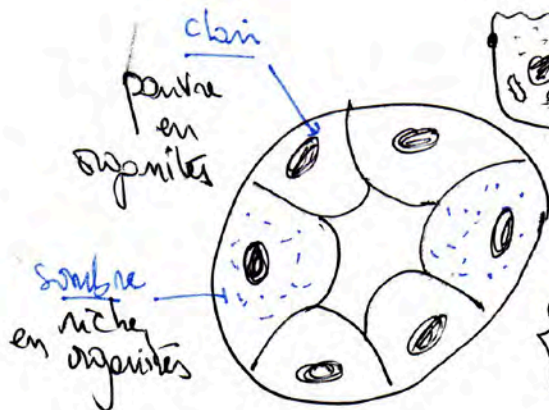 clair
pauvre
en
organites
sombre
riche
en organites